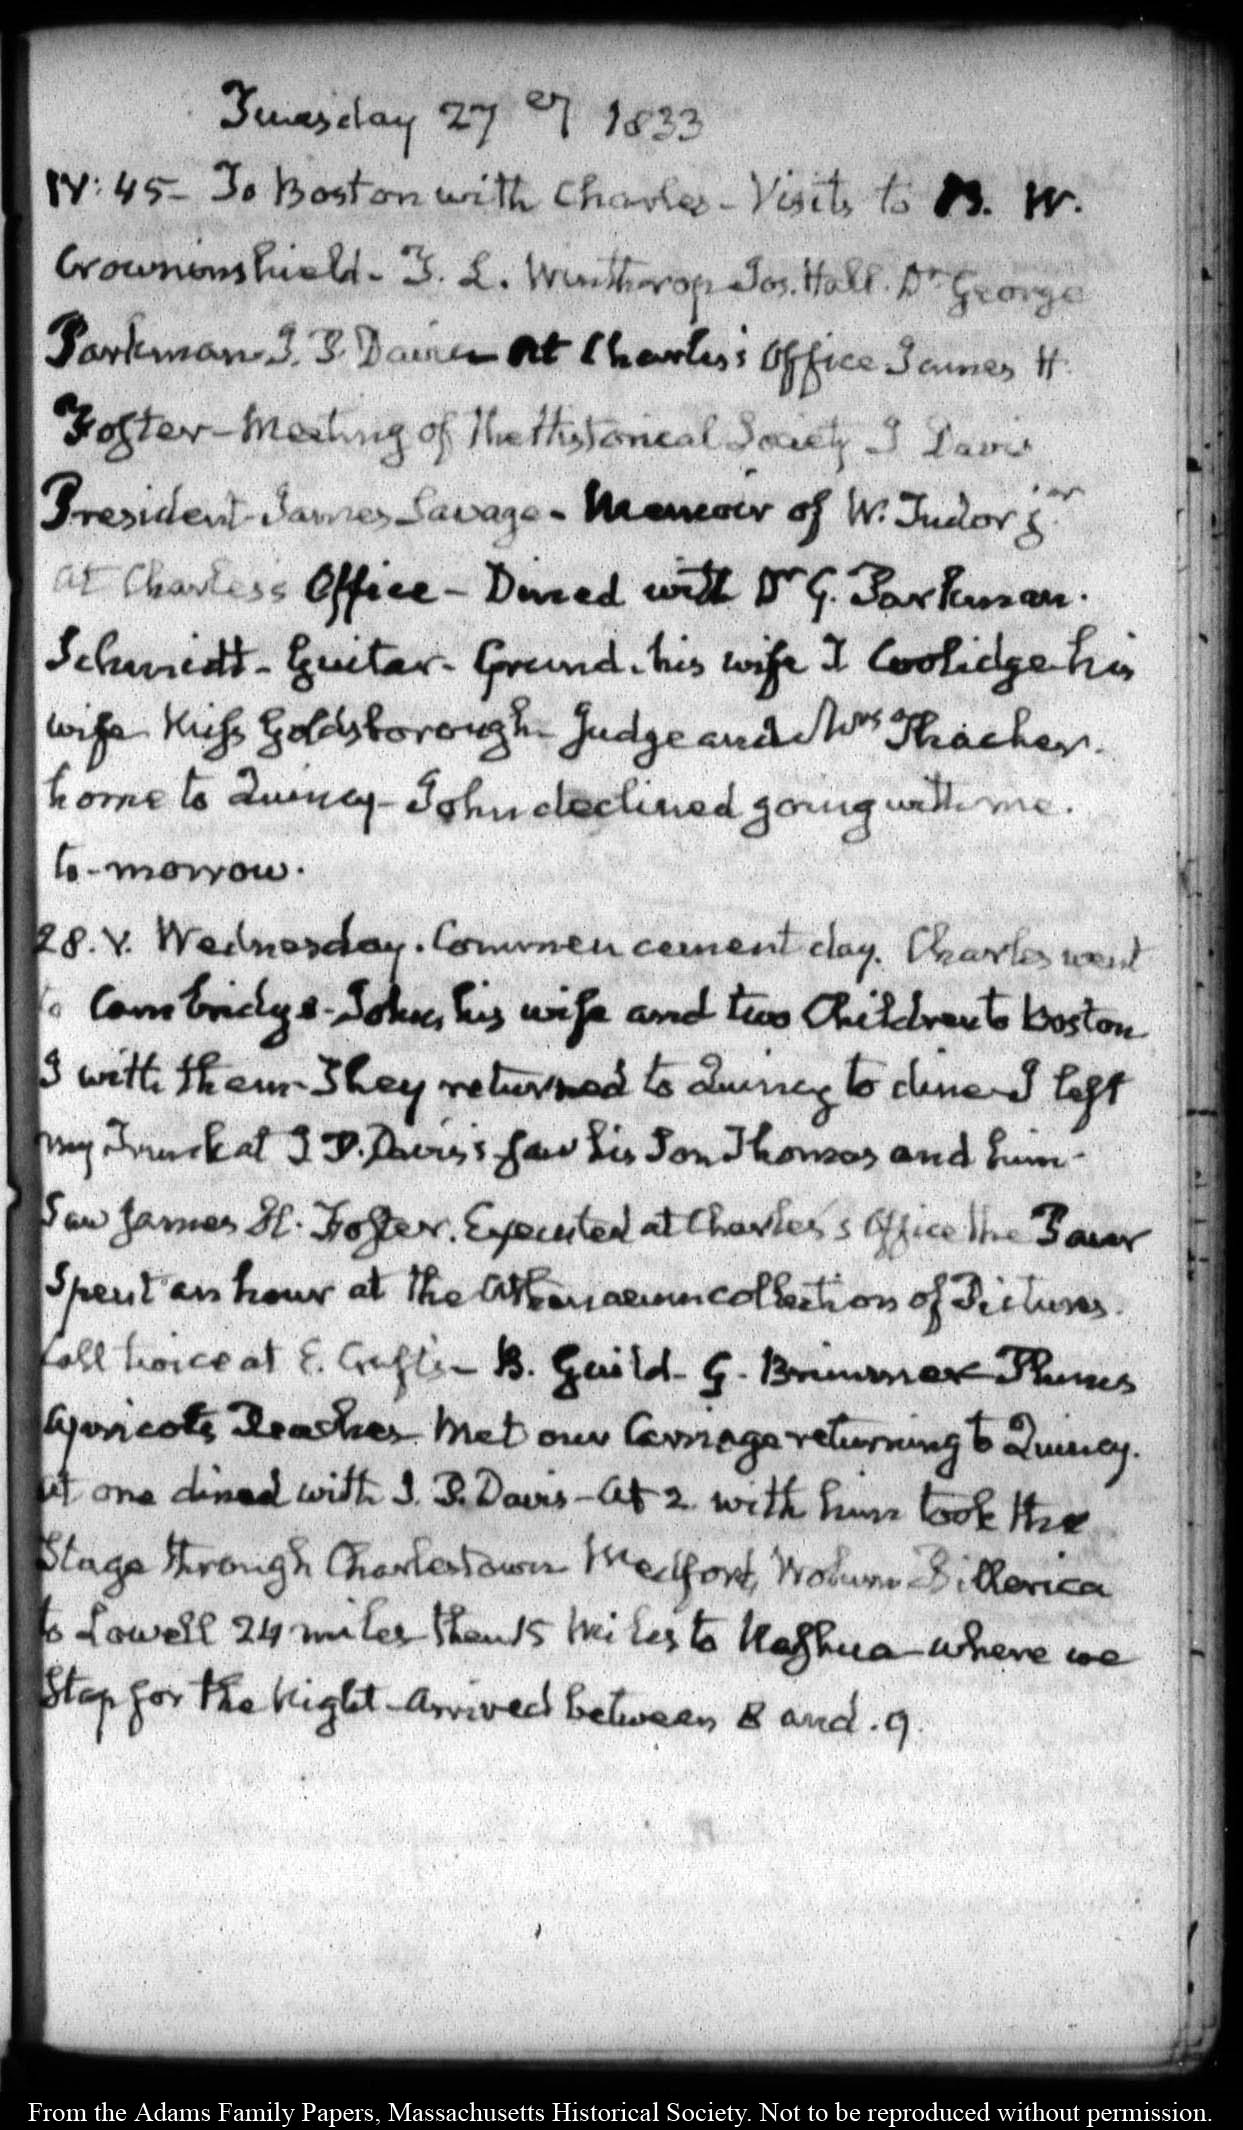 Tuesday 27 1833
IV: 45 - To Boston with Charles - Visits to B. W.
Crowninshield - T. L. Winthrop Jos. Hall. Dr George
Parkman I. P. Davis - At Charles's Office James H.
Foster - Meeting of the Historical Society J Davis
President James Savage - Memoir of W. Tudor jr
at Charles's Office - Dined with Dr G. Parkman.
Schmidt - Guitar - Grund. his wife J Coolidge his
wife Miss Goldsborough - Judge and Mrs Thacher.
home to Quincy - John declined going with me.
to-morrow.
28. V. Wednesday. Commencement day. Charles went
to Cambridge - John, his wife and two Children to Boston
I with them - They returned to Quincy to dine - I left
my Trunk at I P. Davis's saw his Son Thomas and him -
Saw James H. Foster. Executed at Charles's Office the
Spent an hour at the Athenaeum collection of Pictures.
Call twice at E. Crafts - B. Guild - G. Brimmer - Plums
Apricots Peaches. Met our Carriage returning to Quincy.
at one dined with I. P. Davis - At 2 with him took the
Stage through Charlestown Medford, Woburn Billerica
to Lowell 24 miles then 15 Miles to Nashua - where we
Stop for the Night - Arrived between 8 and 9.
From the Adams Family Papers, Massachusetts Historical Society. Not to be reproduced without permission.